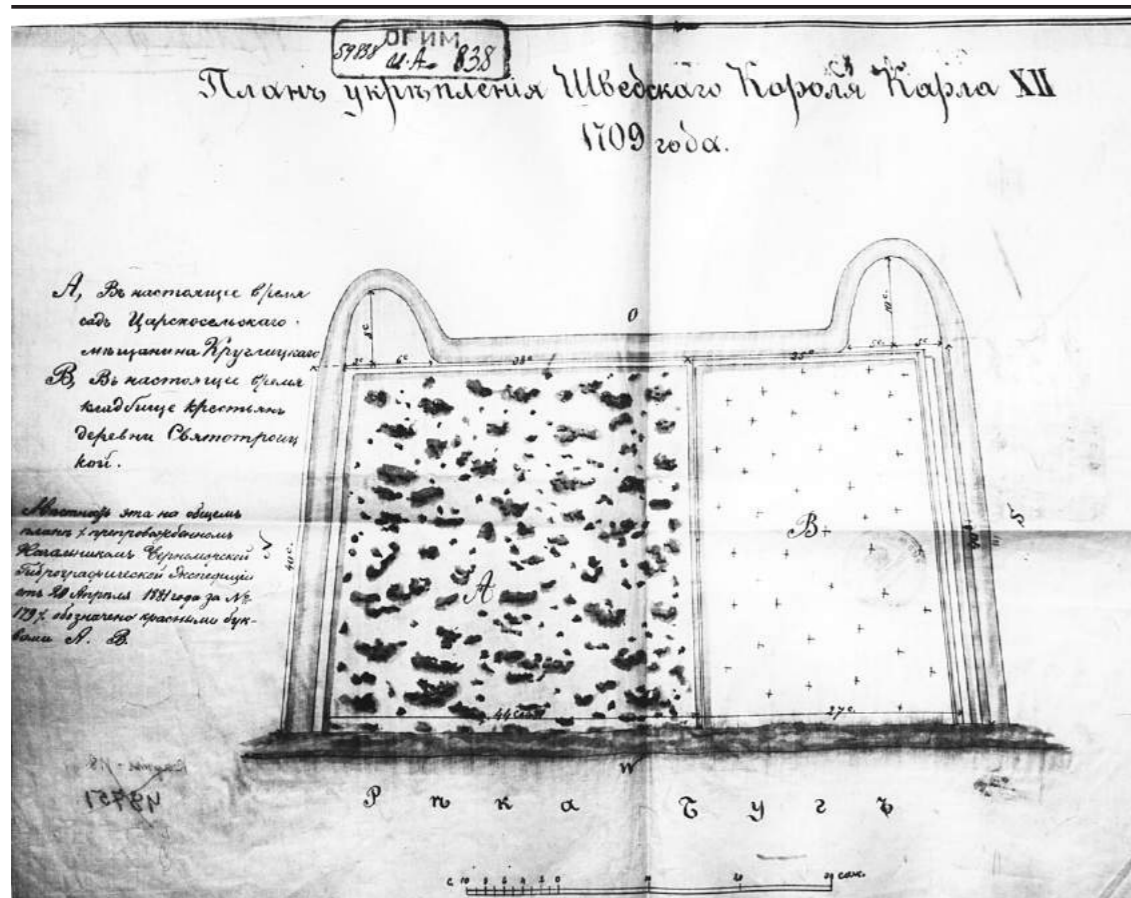 ОГИМ
59838 И.А. 838
Планъ укрѣпленія Шведскаго Короля Карла XII
1709 года.
А, Въ настоящее время
садъ Царскосельскаго
мѣщанина Круглицкаго
В, Въ настоящее время
кладбище крестьянъ
деревни Святотроиц
кой.
Мѣстность эта на общемъ
планѣ препровожденномъ
Начальникомъ Черноморской
Гидрографической Экспедиціи
отъ 20 Апрѣля 1881 года за №
179 обозначено красными бук-
вами А. В.
O
8с
10с.
2с
6с
38с
25с
5с
5с
40с.
S
А
В
44 саж
27с.
W
Рѣка Бугъ
48751
с. 10 8 6 4 2 0 10 20 саж.